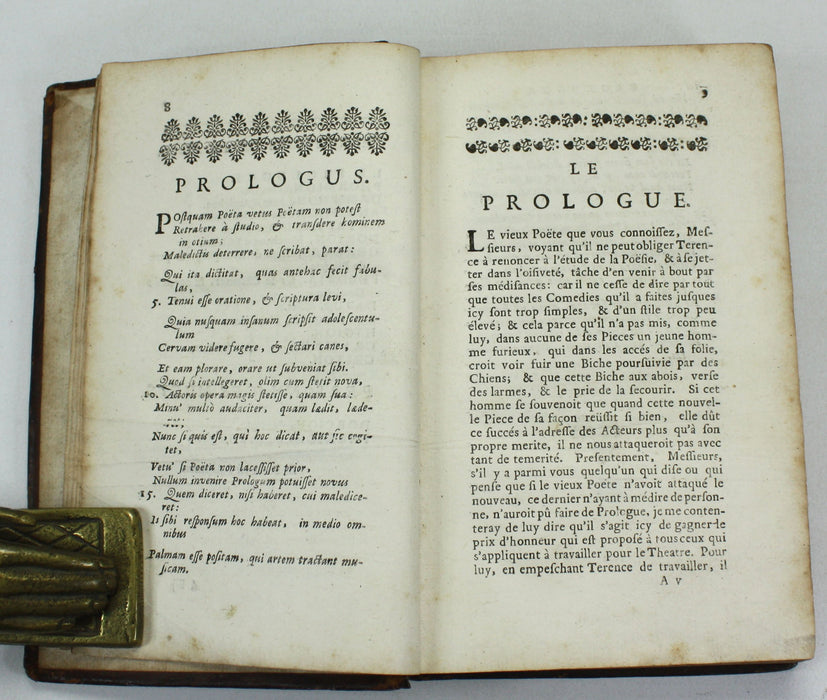 8
PROLOGUS.
POſtquam Poëta vetus Poëtam non poteſt
Retrahere à ſtudio, & tranſdere hominem
in otium;
Maledictis deterrere, ne ſcribat, parat:
Qui ita dictitat, quas antehac fecit fabu-
las,
5. Tenui eſſe oratione, & ſcriptura levi,
Quia nuſquam inſanum ſcripſit adoleſcentu-
lum
Cervam videre fugere, & ſectari canes,
Et eam plorare, orare ut ſubveniat ſibi.
Quod ſi intellegeret, olim cum ſtetit nova,
10. Actoris opera magis ſtetiſſe, quam ſua:
Minu' multò audaciter, quam lædit, læde-
Nunc ſi quis eſt, qui hoc dicat, aut ſic cogi-
tet,
Vetu' ſi Poëta non laceſſiſſet prior,
Nullum invenire Prologum potuiſſet novus
15. Quem diceret, niſi haberet, cui maledice-
ret:
Is ſibi reſponſum hoc habeat, in medio om-
nibus
Palmam eſſe poſitam, qui artem tractant mu-
ſicam.
9
LE
PROLOGUE.
LE vieux Poëte que vous connoiſſez, Meſ-
ſieurs, voyant qu'il ne peut obliger Teren-
ce à renoncer à l'étude de la Poëſie, & à ſe jet-
ter dans l'oiſiveté, tâche d'en venir à bout par
ſes médiſances: car il ne ceſſe de dire par tout
que toutes les Comedies qu'il a faites juſques
icy ſont trop ſimples, & d'un ſtile trop peu
élevé; & cela parce qu'il n'a pas mis, comme
luy, dans aucune de ſes Pieces un jeune hom-
me furieux, qui dans les accés de ſa folie,
croit voir fuir une Biche pourſuivie par des
Chiens; & que cette Biche aux abois, verſe
des larmes, & le prie de la ſecourir. Si cet
homme ſe ſouvenoit que quand cette nouvel-
le Piece de ſa façon réüſſit ſi bien, elle dût
ce ſuccés à l'adreſſe des Acteurs plus qu'à ſon
propre merite, il ne nous attaqueroit pas avec
tant de temerité. Preſentement, Meſſieurs,
s'il y a parmi vous quelqu'un qui diſe ou qui
penſe que ſi le vieux Poëte n'avoit attaqué le
nouveau, ce dernier n'ayant à médire de perſon-
ne, n'auroit pû faire de Prologue, je me conten-
teray de luy dire qu'il s'agit icy de gagner le
prix d'honneur qui eſt propoſé à tous ceux qui
s'appliquent à travailler pour le Theatre. Pour
luy, en empeſchant Terence de travailler, il
A v